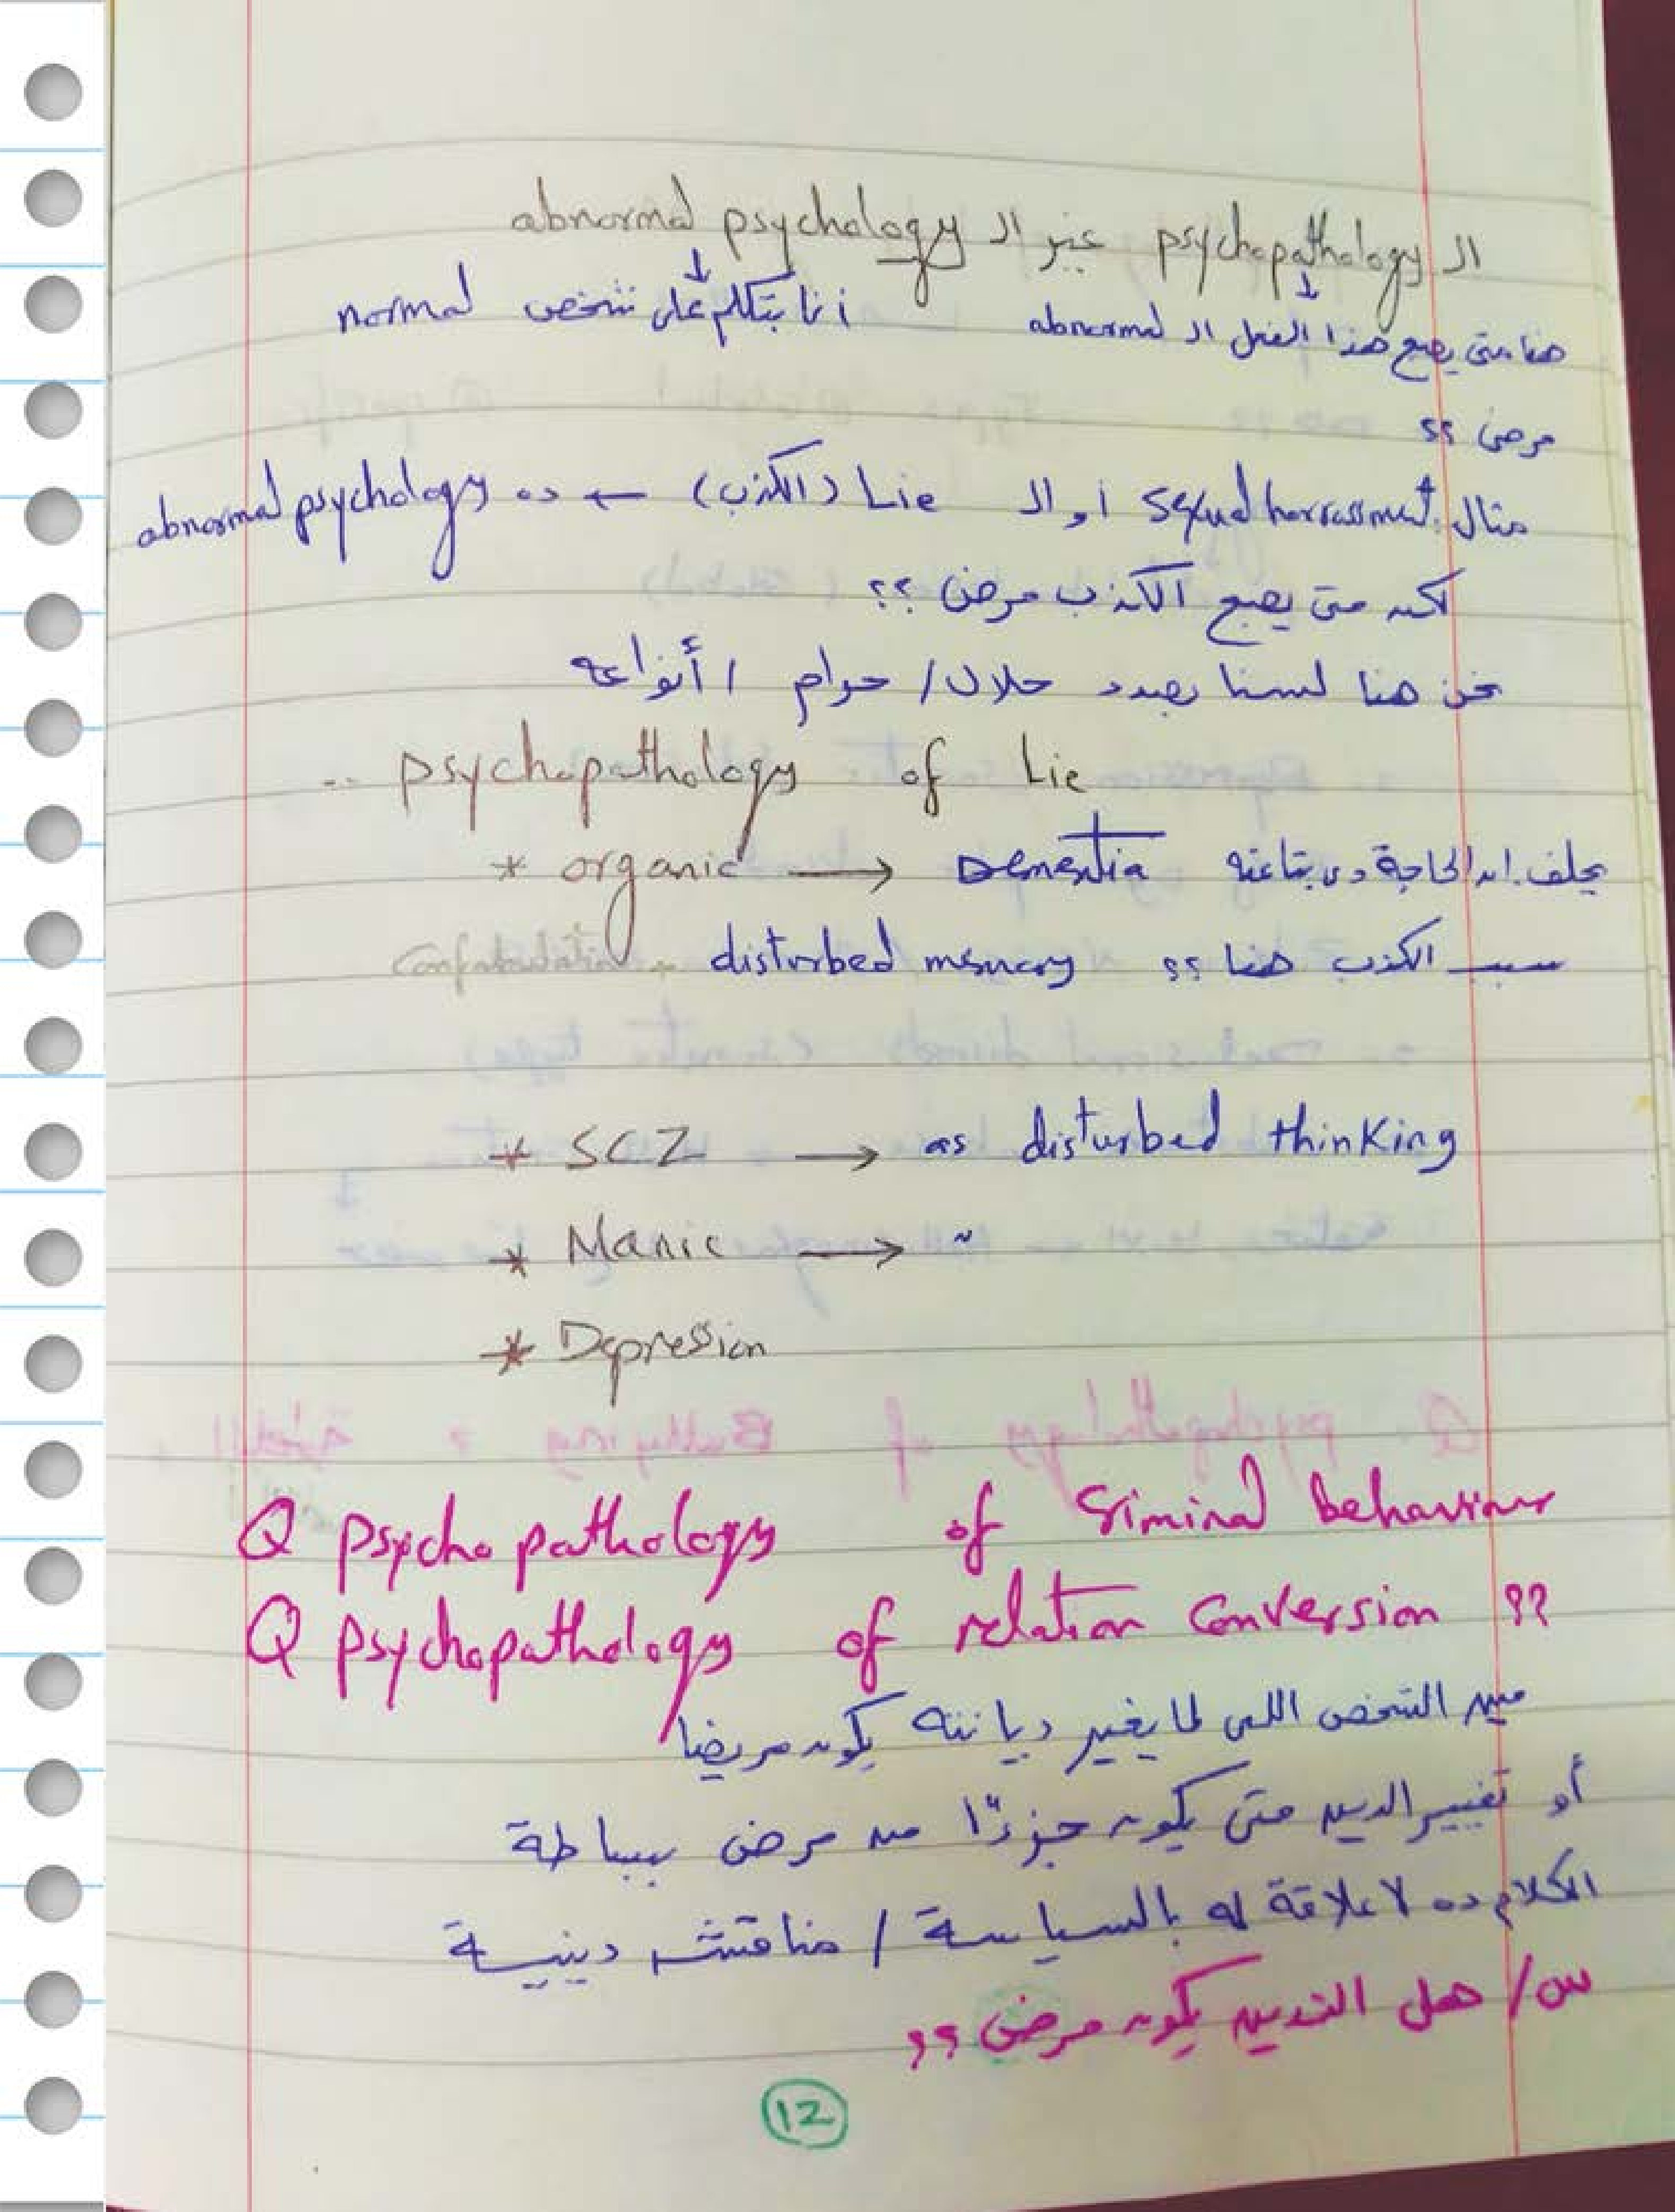 ال psychopathology غير ال abnormal psychology
↓ ↓
هنا متى يصبح هذا الفعل ال abnormal أنا بتكلم على شخص normal
مرض ؟؟
مثال: sexual harrassment أو ال Lie (الكذب) ← ده abnormal psychology
لكن متى يصبح الكذب مرض ؟؟
نحن هنا لسنا بصدد حلال / حرام / أنواعه
.. psychopathology of Lie
* organic → Dementia يحلف ان الحاجة دى بتاعته
سبب الكذب هنا ؟؟ disturbed memory - Confabulation
* SCZ → as disturbed thinking
* Manic → ~
* Depression
Q psychopathology of Criminal behaviour
Q psychopathology of relation Conversion ??
مين الشخص اللى لما يغير ديانته يكون مريضا
أو تغيير الدين متى يكون جزءًا من مرض ببساطة
الكلام ده لا علاقة له بالسياسة / مناقشة دينية
س/ هل التدين يكون مرض ؟؟
12